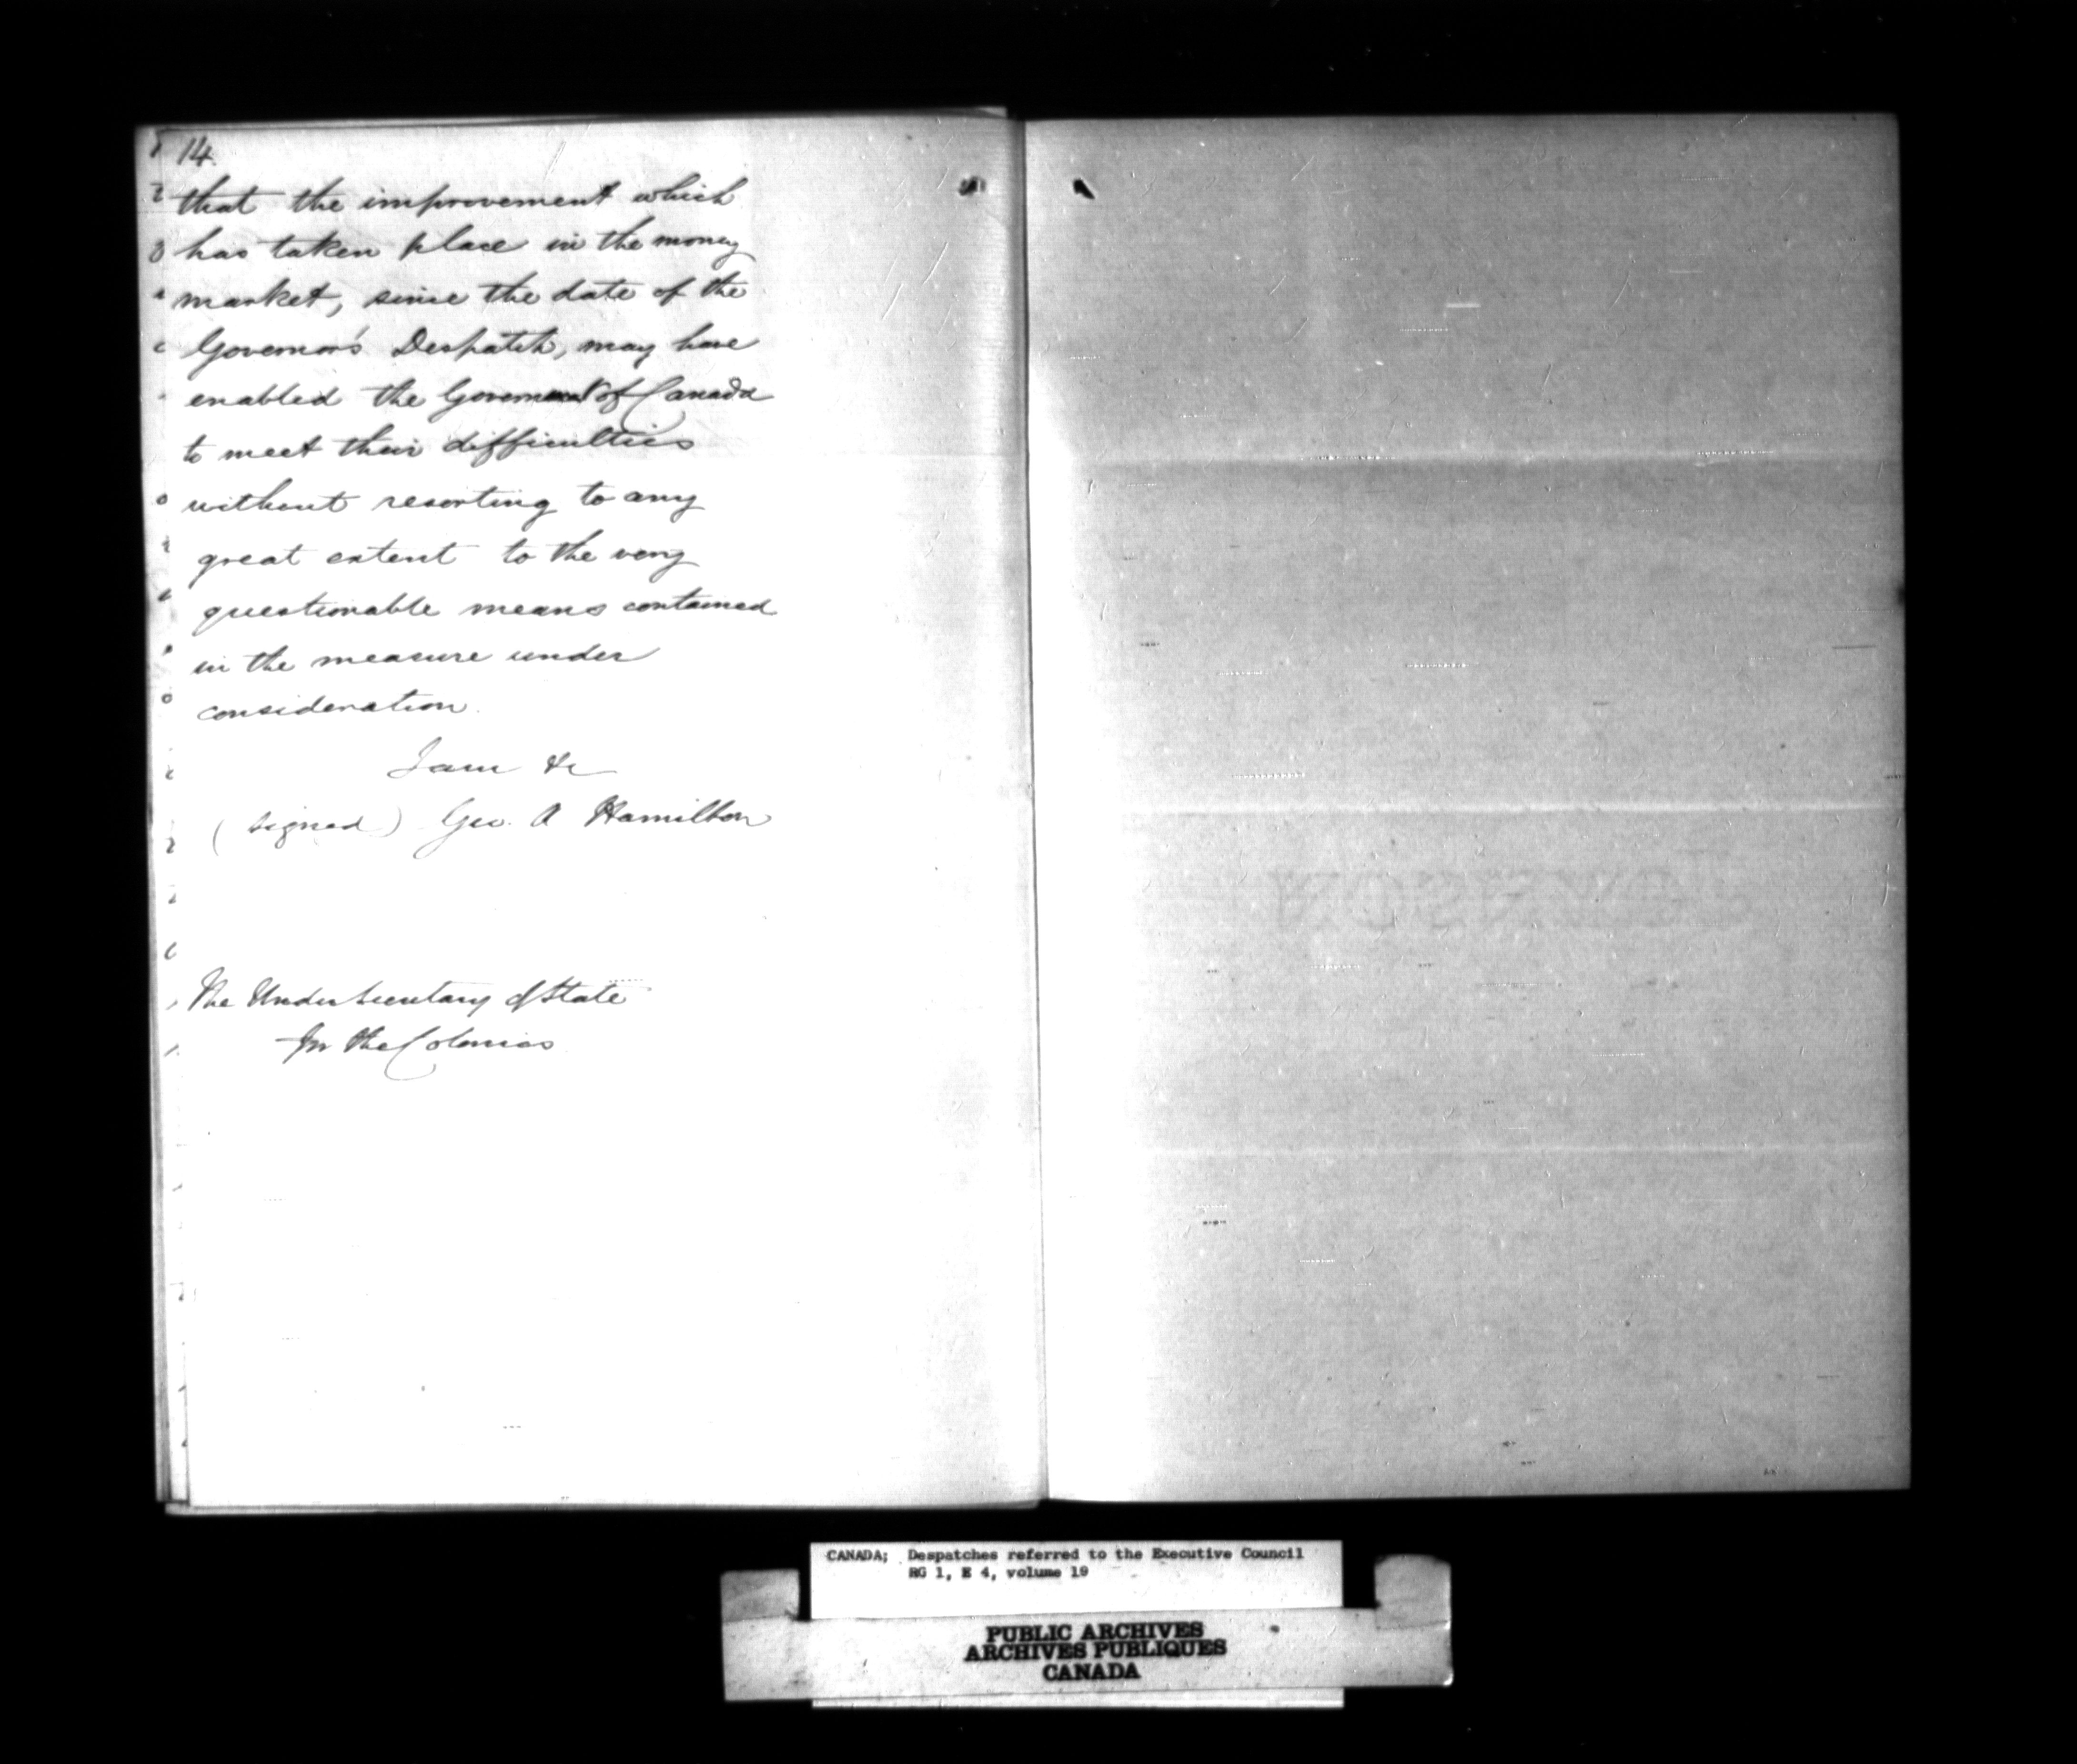 14
that the improvement which
has taken place in the money
market, since the date of the
Governor's Despatch, may have
enabled the Government of Canada
to meet their difficulties
without resorting to any
great extent to the very
questionable means contained
in the measure under
consideration.
I am &c
(signed) Geo. A Hamilton
The Under Secretary of State
For the Colonies
CANADA; Despatches referred to the Executive Council
RG 1, E 4, volume 19
PUBLIC ARCHIVES
ARCHIVES PUBLIQUES
CANADA